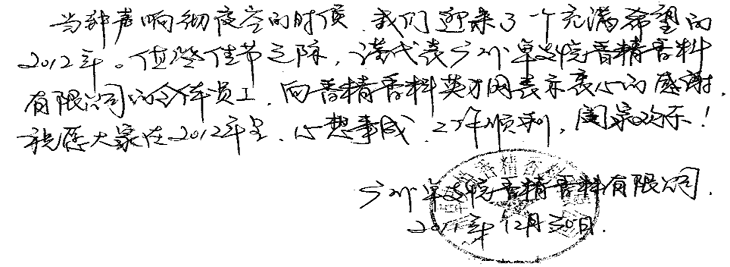 当钟声响彻夜空的时候，我们迎来了一个充满希望的
2012年。值此佳节之际，谨代表广州香精香料
有限公司的全体员工，向香精香料英才网表示衷心的感谢，
祝愿大家在2012年里，心想事成，工作顺利，阖家欢乐！
广州香精香料有限公司.
2011年12月30日.